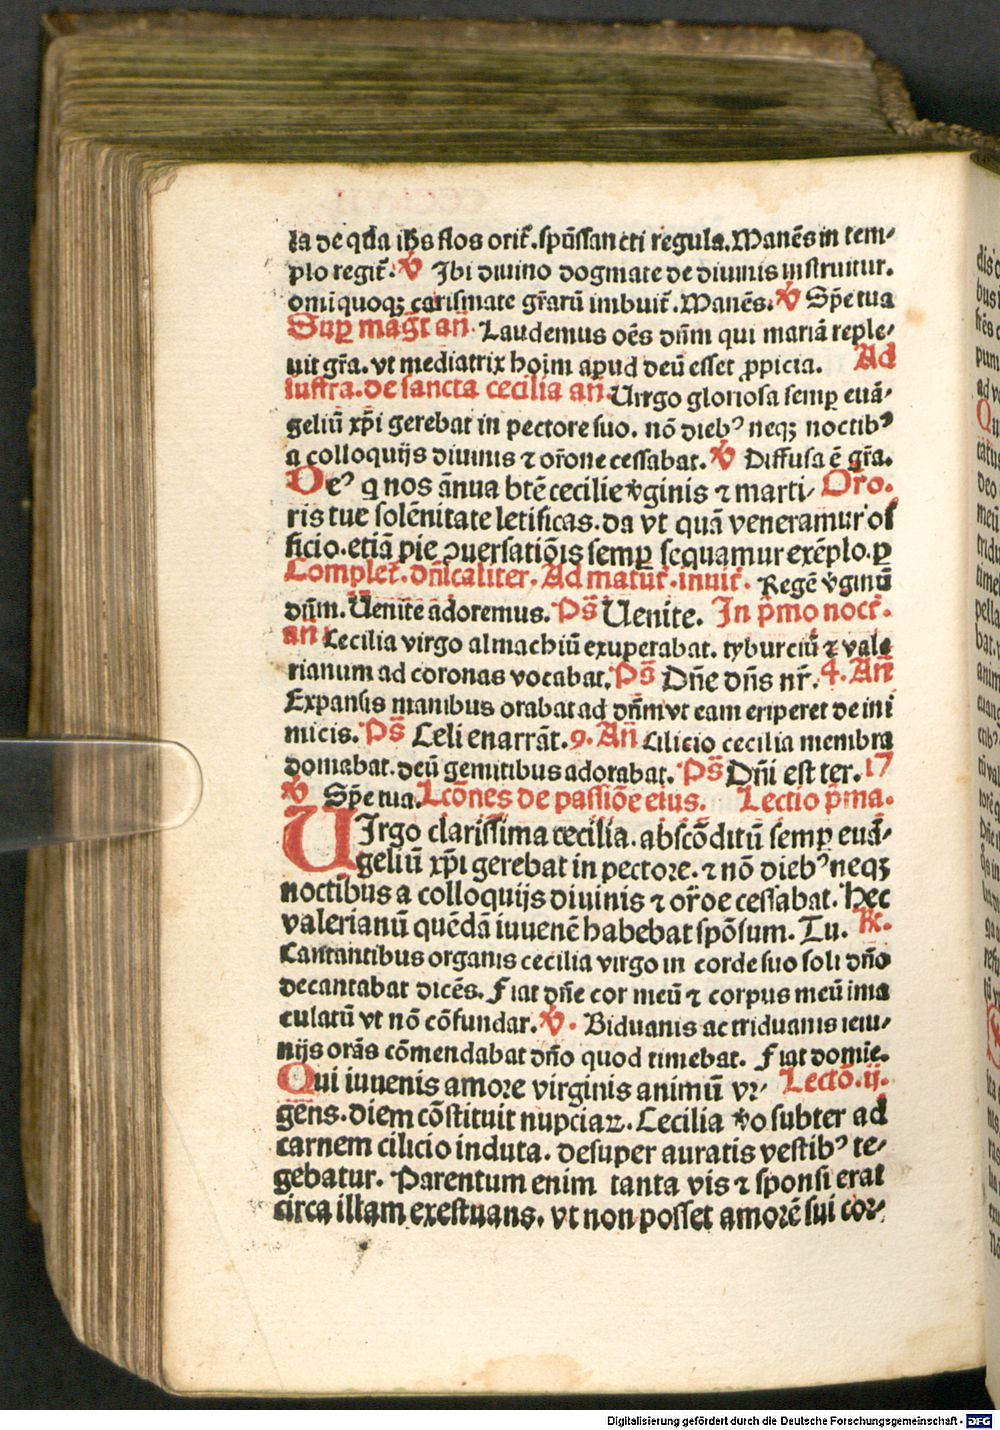 la de qͣda ihs flos orit̃. spũssancti regula. Manẽs in tem⸗
plo regit̃. ℣ Ibi diuino dogmate de diuinis instruitur.
omĩquoqꝫ carismate gr̃arũ imbuit̃. Manẽs. ℣ Spẽ tua
Suꝑ mag̃t añ. Laudemus oẽs dñm qui mariã reple⸗
uit gr̃a. vt mediatrix hoĩm apud deũ esset ꝓpicia. Ad
lustra. de sancta cecilia añ. Uirgo gloriosa semꝑ euã⸗
geliũ xp̃i gerebat in pectore suo. nõ diebꝰ neqꝫ noctibꝰ
a colloquijs diuinis ⁊ or̃one cessabat. ℣ Diffusa ẽ gr̃a.
Deꝰ q nos ãnua btẽ cecilie v̾ginis ⁊ marti⸗ Or̃o.
ris tue solẽnitate letificas. da vt quã veneramur of
ficio. etiã pie ꝯuersatiõis semꝑ sequamur exẽplo. ꝑ
Complet̃. dñicaliter. Ad matut̃. inuit̃. Regẽ v̾ginũ
dũm. Uenite adoremus. Ps̃ Uenite. In p̃mo noct̃.
añ Cecilia virgo almachiũ exuperabat. tyburciũ ⁊ vale
rianum ad coronas vocabat. Ps̃ Dñe dñs nr̃. 4. Añ
Expansis manibus orabat ad dñm vt eam eriperet de ini
micis. Ps̃ Celi enarrãt. 9. Añ Cilicio cecilia membra
domabat. deũ gemitibus adorabat. Ps̃ Dñi est ter. 17
℣ Spẽ tua. Lcõnes de passiõe eius. Lectio p̃ma.
UIrgo clarissima cecilia. abscõditũ semꝑ euã⸗
geliũ xp̃i gerebat in pectore. ⁊ nõ diebꝰ neqꝫ
noctibus a colloquijs diuinis ⁊ or̃oe cessabat. Hec
valerianũ quẽdã iuuenẽ habebat spõsum. Tu. ℟.
Cantantibus organis cecilia virgo in corde suo soli dño
decantabat dicẽs. Fiat dñe cor meũ ⁊ corpus meũ ima
culatũ vt nõ cõfundar. ℣. Biduanis ac triduanis ieiu⸗
nijs orãs cõmendabat dño quod timebat. Fiat domie.
Qui iuuenis amore virginis animũ vr⸗ Lectõ. ij.
gẽns. diem cõstituit nupciaꝝ. Cecilia v̾o subter ad
carnem cilicio induta. desuper auratis vestibꝰ te⸗
gebatur. Parentum enim tanta vis ⁊ sponsi erat
circa illam exestuans. vt non posset amorẽ sui cor⸗
Digitalisierung gefördert durch die Deutsche Forschungsgemeinschaft - DFG